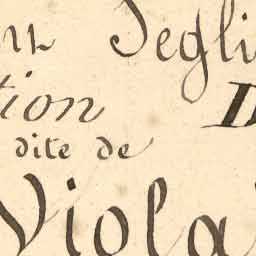 Segli
tion D
dite de
Viola